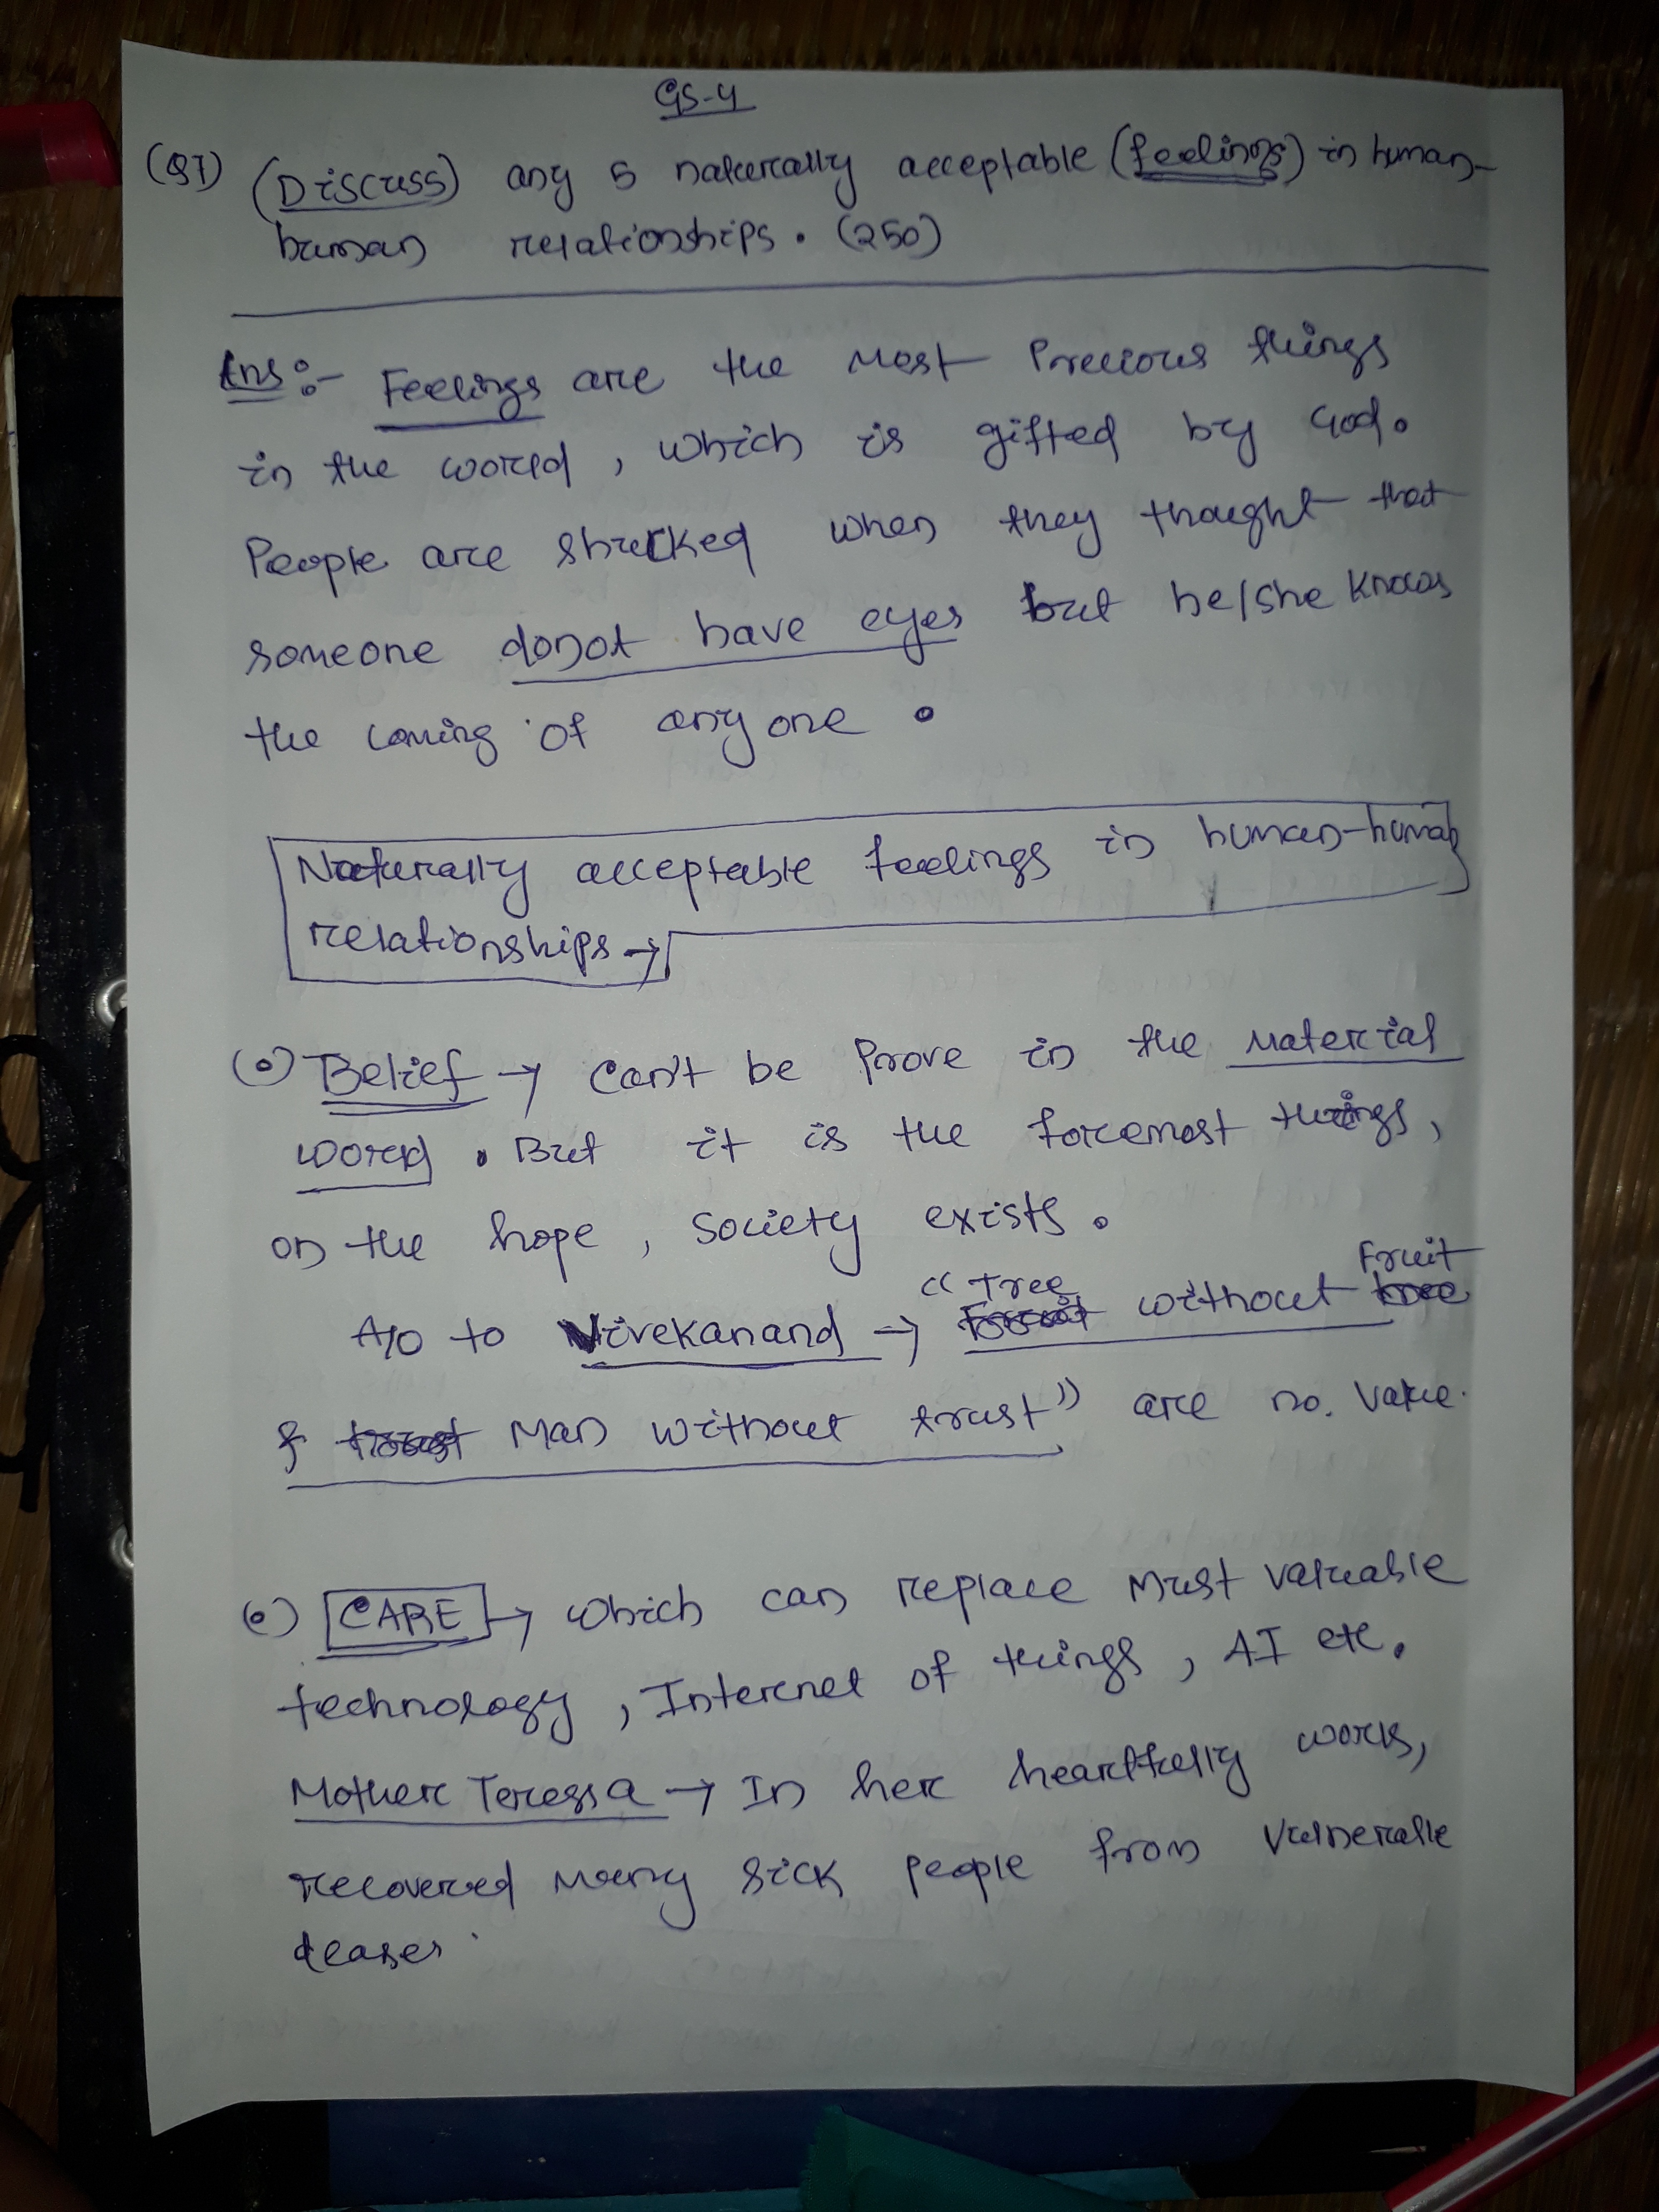 GS-4
(Q1) (Discuss) any 5 naturally acceptable (feelings) in human-
human relationships. (250)
Ans:- Feelings are the most Precious things
in the world, which is gifted by God.
People are shucked when they thought that
someone donot have eyes but he/she knows
the coming of any one.
Naturally acceptable feelings in human-human
relationships →
(•) Belief → Can't be Prove in the Material
world. But it is the foremost things,
on the hope, society exists.
A/O to Vivekanand → "Tree without Fruit
& Man without trust" are no. value.
(•) CARE → which can replace Must valuable
technology, Internet of things, AI etc.
Mother Teressa → In her heartfully work,
recovered many sick people from vulnerable
deases.